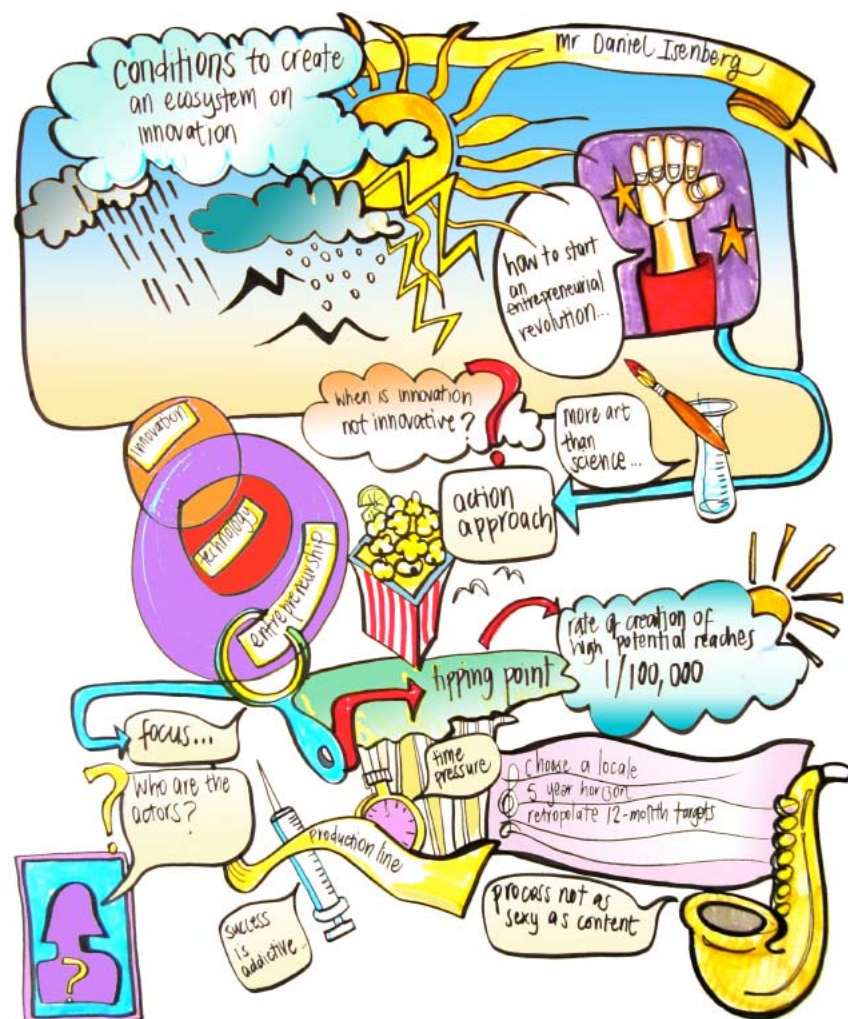 conditions to create
an ecosystem on
innovation
Mr Daniel Isenberg
how to start
an
entrepreneurial
revolution...
when is innovation
not innovative?
more art
than
science...
action
approach
innovation
technology
entrepreneurship
rate of creation of
high potential reaches
1/100,000
tipping point
focus...
time
pressure
who are the
actors?
choose a locale
5 year horizon
retropolate 12-month targets
production line
success
is
addictive..
process not as
sexy as content
?